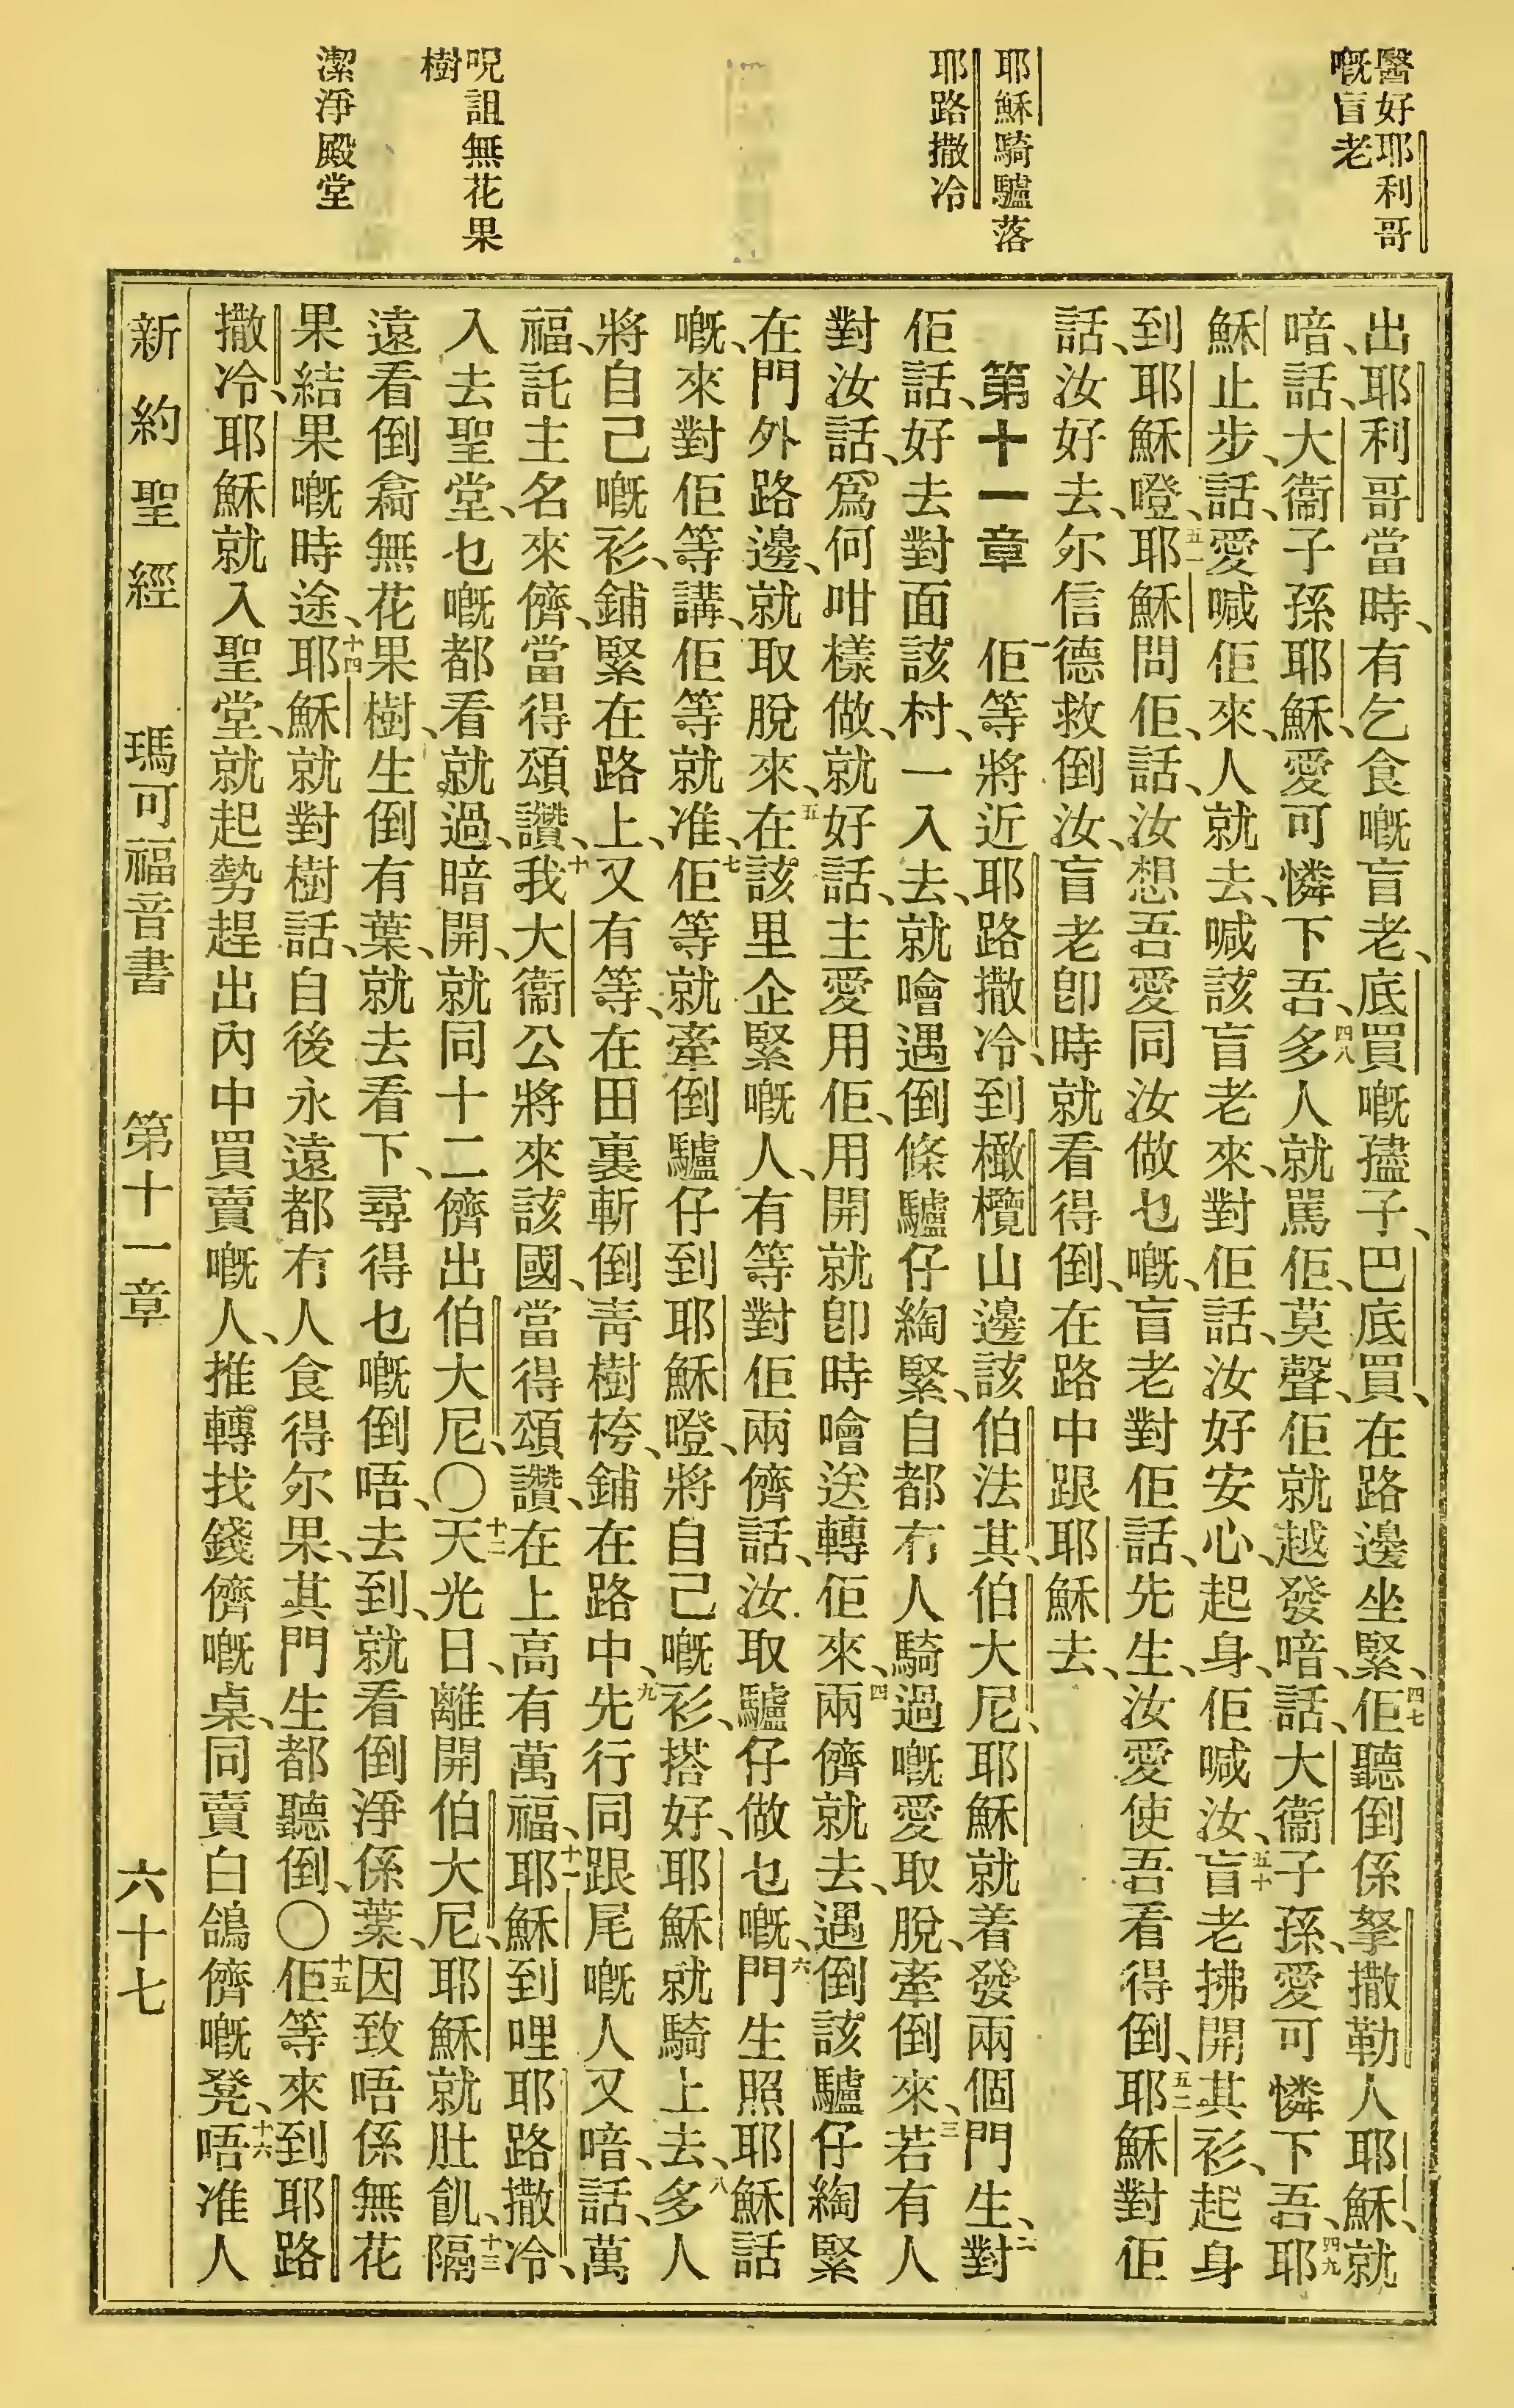 醫好耶利哥
嘅盲老
耶穌騎驢落
耶路撒冷
呪詛無花果
樹
潔淨殿堂
出耶利哥當時、有乞食嘅盲老、底買嘅孻子、巴底買、在路邊坐緊、四七佢聽倒係拏撒勒人耶穌、就
喑、話、大衞子孫耶穌、愛可憐下吾、四八多人就駡佢、莫聲、佢就越發喑、話、大衞子孫、愛可憐下吾、四九耶
穌止步、話、愛喊佢來、人就去喊該盲老來、對佢話、汝好安心、起身、佢喊汝、五十盲老拂開其衫、起身
到耶穌嶝、五一耶穌問佢、話、汝想吾愛同汝做乜嘅、盲老對佢話、先生、汝愛使吾看得倒、五二耶穌對佢
話、汝好去、尔信德救倒汝、盲老卽時就看得倒、在路中跟耶穌去、
第十一章 一佢等將近耶路撒冷、到橄欖山邊該伯法其、伯大尼、耶穌就着發兩個門生、二對
佢話、好去對面該村、一入去、就噲遇倒條驢仔綯緊、自都冇人騎過嘅、愛取脫、牽倒來、三若有人
對汝話、爲何咁樣做、就好話、主愛用佢、用開就卽時噲送轉佢來、四兩儕就去、遇倒該驢仔綯緊
在門外路邊、就取脫來、五在該里企緊嘅人、有等對佢兩儕話、汝取驢仔做乜嘅、六門生照耶穌話
嘅、來對佢等講、佢等就准、七佢等就牽倒驢仔到耶穌嶝、將自己嘅衫、搭好、耶穌就騎上去、八多人
將自己嘅衫、鋪緊在路上、又有等、在田裏斬倒靑樹桍、鋪在路中、九先行同跟尾嘅人又喑、話、萬
福、託主名來儕、當得頌讚、十我大衞公將來該國、當得頌讚、在上高有萬福、十一耶穌到哩耶路撒冷、
入去聖堂、乜嘅都看就過、暗開、就同十二儕出伯大尼、〇十二天光日、離開伯大尼、耶穌就肚飢、十三隔
遠看倒䆀無花果樹、生倒有葉、就去看下、尋得乜嘅倒唔、去到、就看倒淨係葉、因致唔係無花
果結果嘅時途、十四耶穌就對樹話、自後永遠都冇人食得尔果、其門生都聽倒、〇十五佢等來到耶路
撒冷、耶穌就入聖堂、就起勢趕出內中買賣嘅人、推轉找錢儕嘅桌、同賣白鴿儕嘅凳、十六唔准人
新約聖經 瑪可福音書 第十一章 六十七